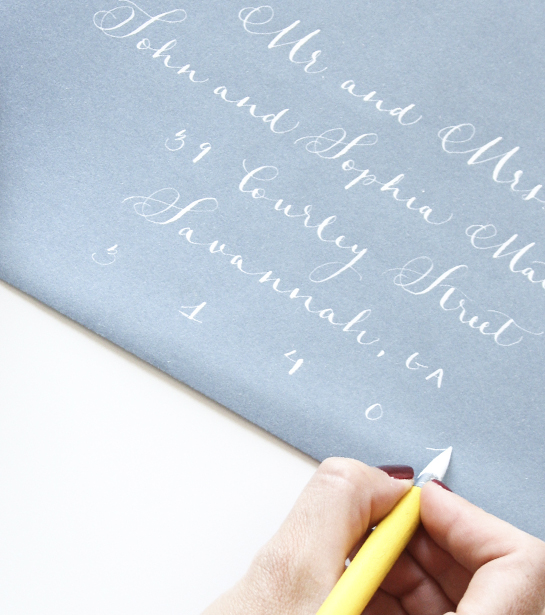 Mr. and Mrs.
John and Sophia
39 Courley Street
Savannah, GA
3 1 4 0